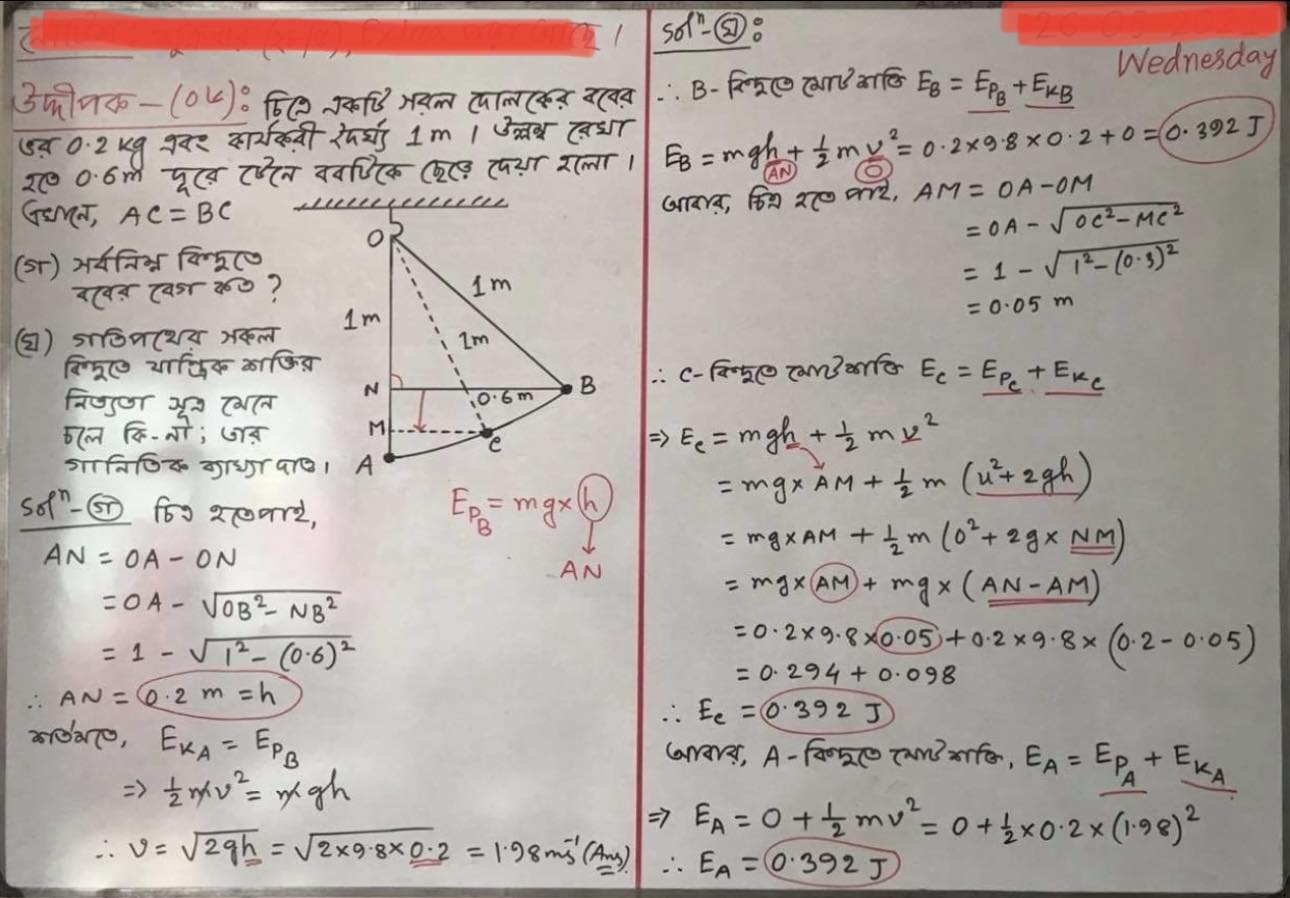 উদ্দীপক-(০৮): চিত্রে একটি সরল দোলকের ববের
ভর 0.2 kg এবং কার্যকরী দৈর্ঘ্য 1m । উলম্ব রেখা
হতে 0.6m দূরে টেনে ববটিকে ছেড়ে দেয়া হলো ।
এখানে, AC = BC
(গ) সর্বনিম্ন বিন্দুতে
ববের বেগ কত ?
(ঘ) গতিপথের সকল
বিন্দুতে যান্ত্রিক শক্তির
নিত্যতা সূত্র মেনে
চলে কি-না; তার
গানিতিক ব্যাখ্যা দাও।
O
1m
1m
1m
N
B
0.6m
M
C
A
E_{P_B} = mg×h
AN
Solⁿ-(গ) চিত্র হতে পাই,
AN = OA - ON
= OA - √(OB² - NB²)
= 1 - √(1² - (0.6)²)
∴ AN = 0.2 m = h
শর্তমতে, E_{K_A} = E_{P_B}
⇒ ½mv² = mgh
∴ v = √2gh = √2×9.8×0.2 = 1.98ms⁻¹ (Ans)
Solⁿ-(ঘ):
Wednesday
∴ B-বিন্দুতে মোট শক্তি E_B = E_{P_B} + E_{K_B}
E_B = mgh + ½mv² = 0.2×9.8×0.2+0 = 0.392 J
AN 0
আবার, চিত্র হতে পাই, AM = OA-OM
= OA - √(OC² - MC²)
= 1 - √(1² - (0.3)²)
= 0.05 m
∴ C-বিন্দুতে মোট শক্তি E_C = E_{P_C} + E_{K_C}
⇒ E_C = mgh + ½mv²
= mg×AM + ½m (u²+2gh)
= mg×AM + ½m (0²+2g×NM)
= mg×AM + mg×(AN-AM)
= 0.2×9.8×0.05+0.2×9.8×(0.2-0.05)
= 0.294 + 0.098
∴ E_C = 0.392 J
আবার, A-বিন্দুতে মোট শক্তি, E_A = E_{P_A} + E_{K_A}
⇒ E_A = 0 + ½mv² = 0+½×0.2×(1.98)²
∴ E_A = 0.392 J